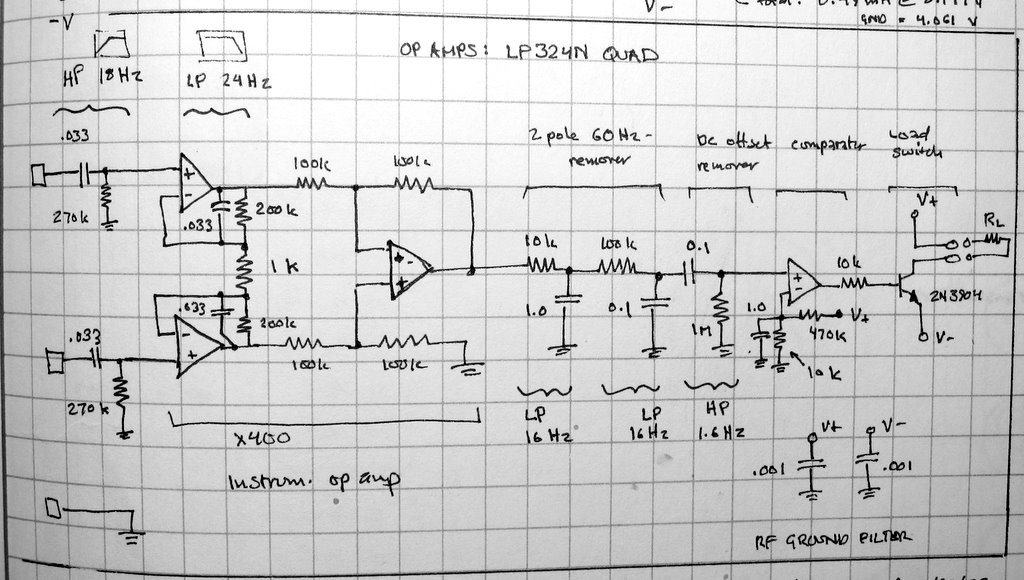 -V
V-
GND = 4.061 V
OP AMPS: LP324N QUAD
HP 18Hz
LP 24Hz
.033
270k
.033
200k
1k
.033
200k
.033
270k
100k
100k
100k
100k
x400
Instrum. op amp
2 pole 60Hz-
remover
DC offset
remover
comparator
Load
switch
10k
100k
0.1
1.0
0.1
1M
10k
1.0
470k
V+
10k
V+
RL
2N3904
V-
LP
16Hz
LP
16Hz
HP
1.6Hz
V+
.001
V-
.001
RF GROUND FILTER